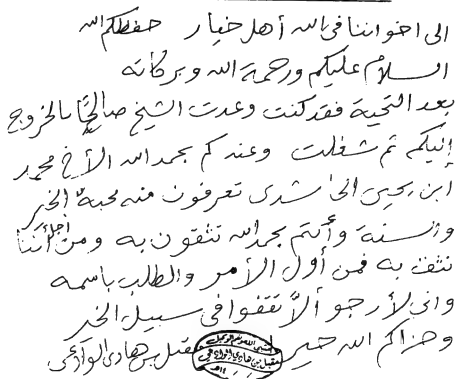 الى اخواننا في الله أهل خيار حفظكم الله
السلام عليكم ورحمة الله وبركاته
بعد التحية فقد كنت وعدت الشيخ صالحًا بالخروج
إليكم ثم شغلت وعندكم بحمد الله الأخ محمد
ابن يحيى تعرفون منه محبة الخير
والسنة وأنتم بحمد الله تثقون به ومن أجل أننا
نثق به فمن أول الأمر والطلب باسمه
واني لأرجو ألاّ تقفوا في سبيل الخير
وجزاكم الله خير مقبل بن هادي الوادعي
مقبل بن هادي الوادعي